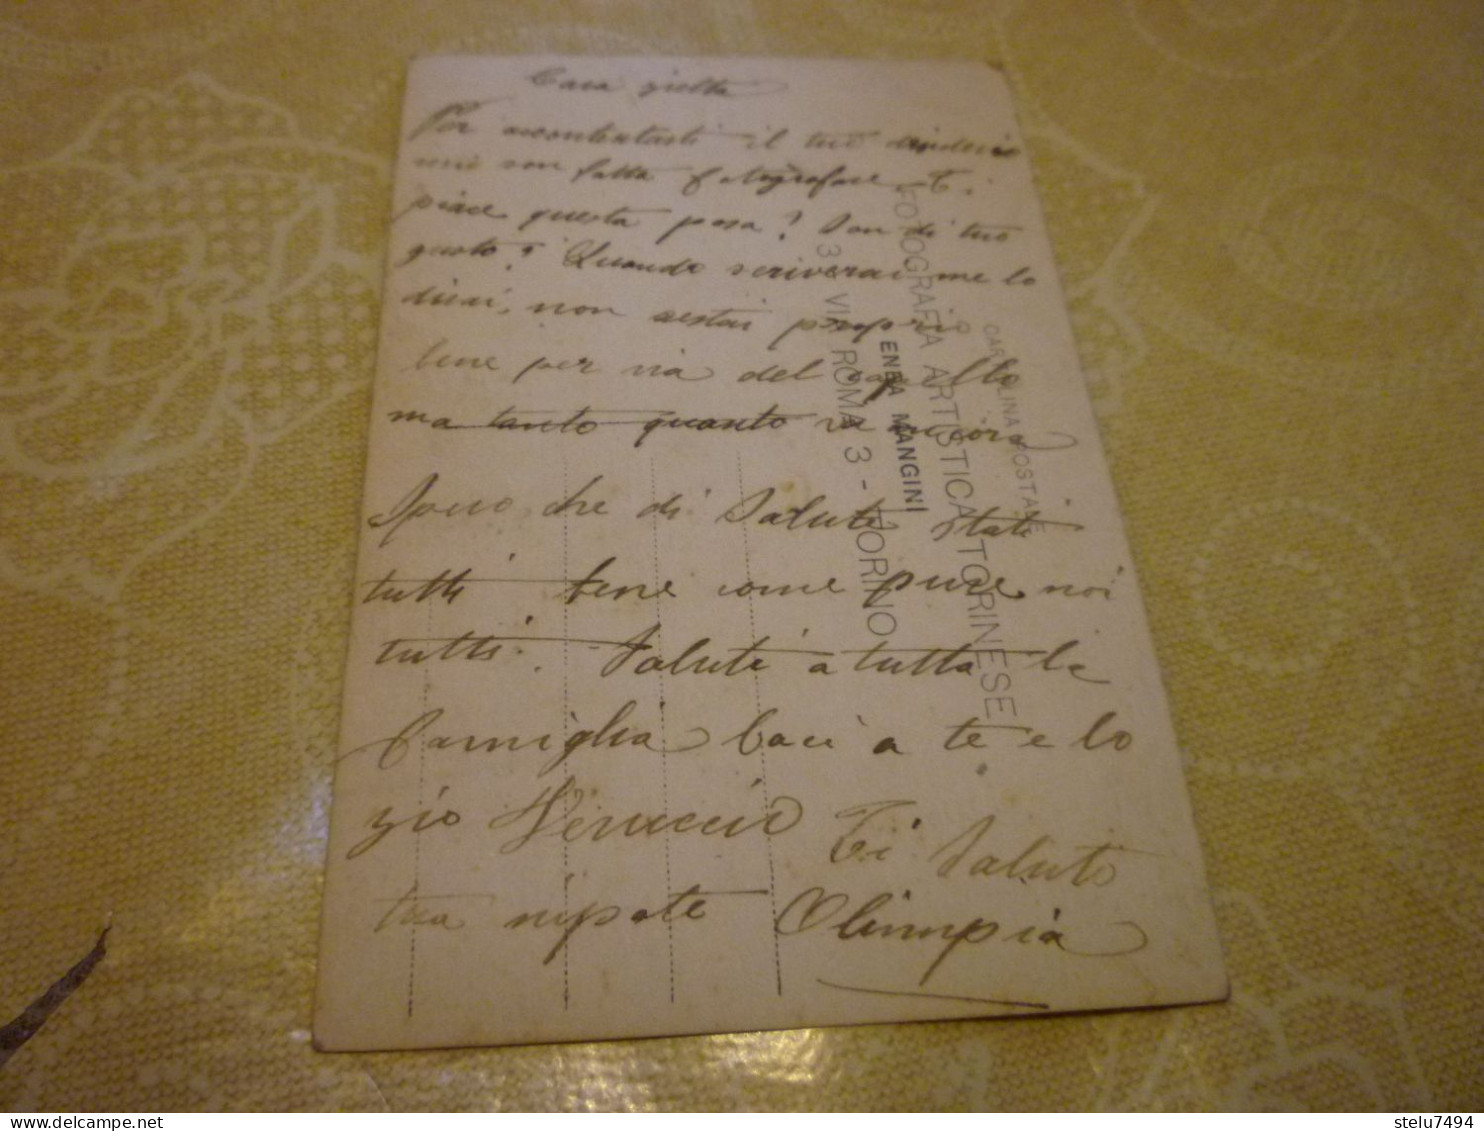 Cara zietta
Per accontentarti il tuo desiderio
mi son fatta fotografare. Ti
piace questa posa? Son di tuo
gusto? Quando scriverai me lo
dirai, non restai proprio
bene per via del capello
ma tanto quanto va ancora
Spero che di Salute state
tutti bene come pure noi
tutti. Saluti a tutta la
famiglia baci a te e lo
zio Ti Saluto
tua nipote Olimpia
CARTOLINA POSTALE
FOTOGRAFIA ARTISTICA TORINESE
ENEA MANGINI
3 - VIA ROMA 3 - TORINO
delcampe.net
stelu7494